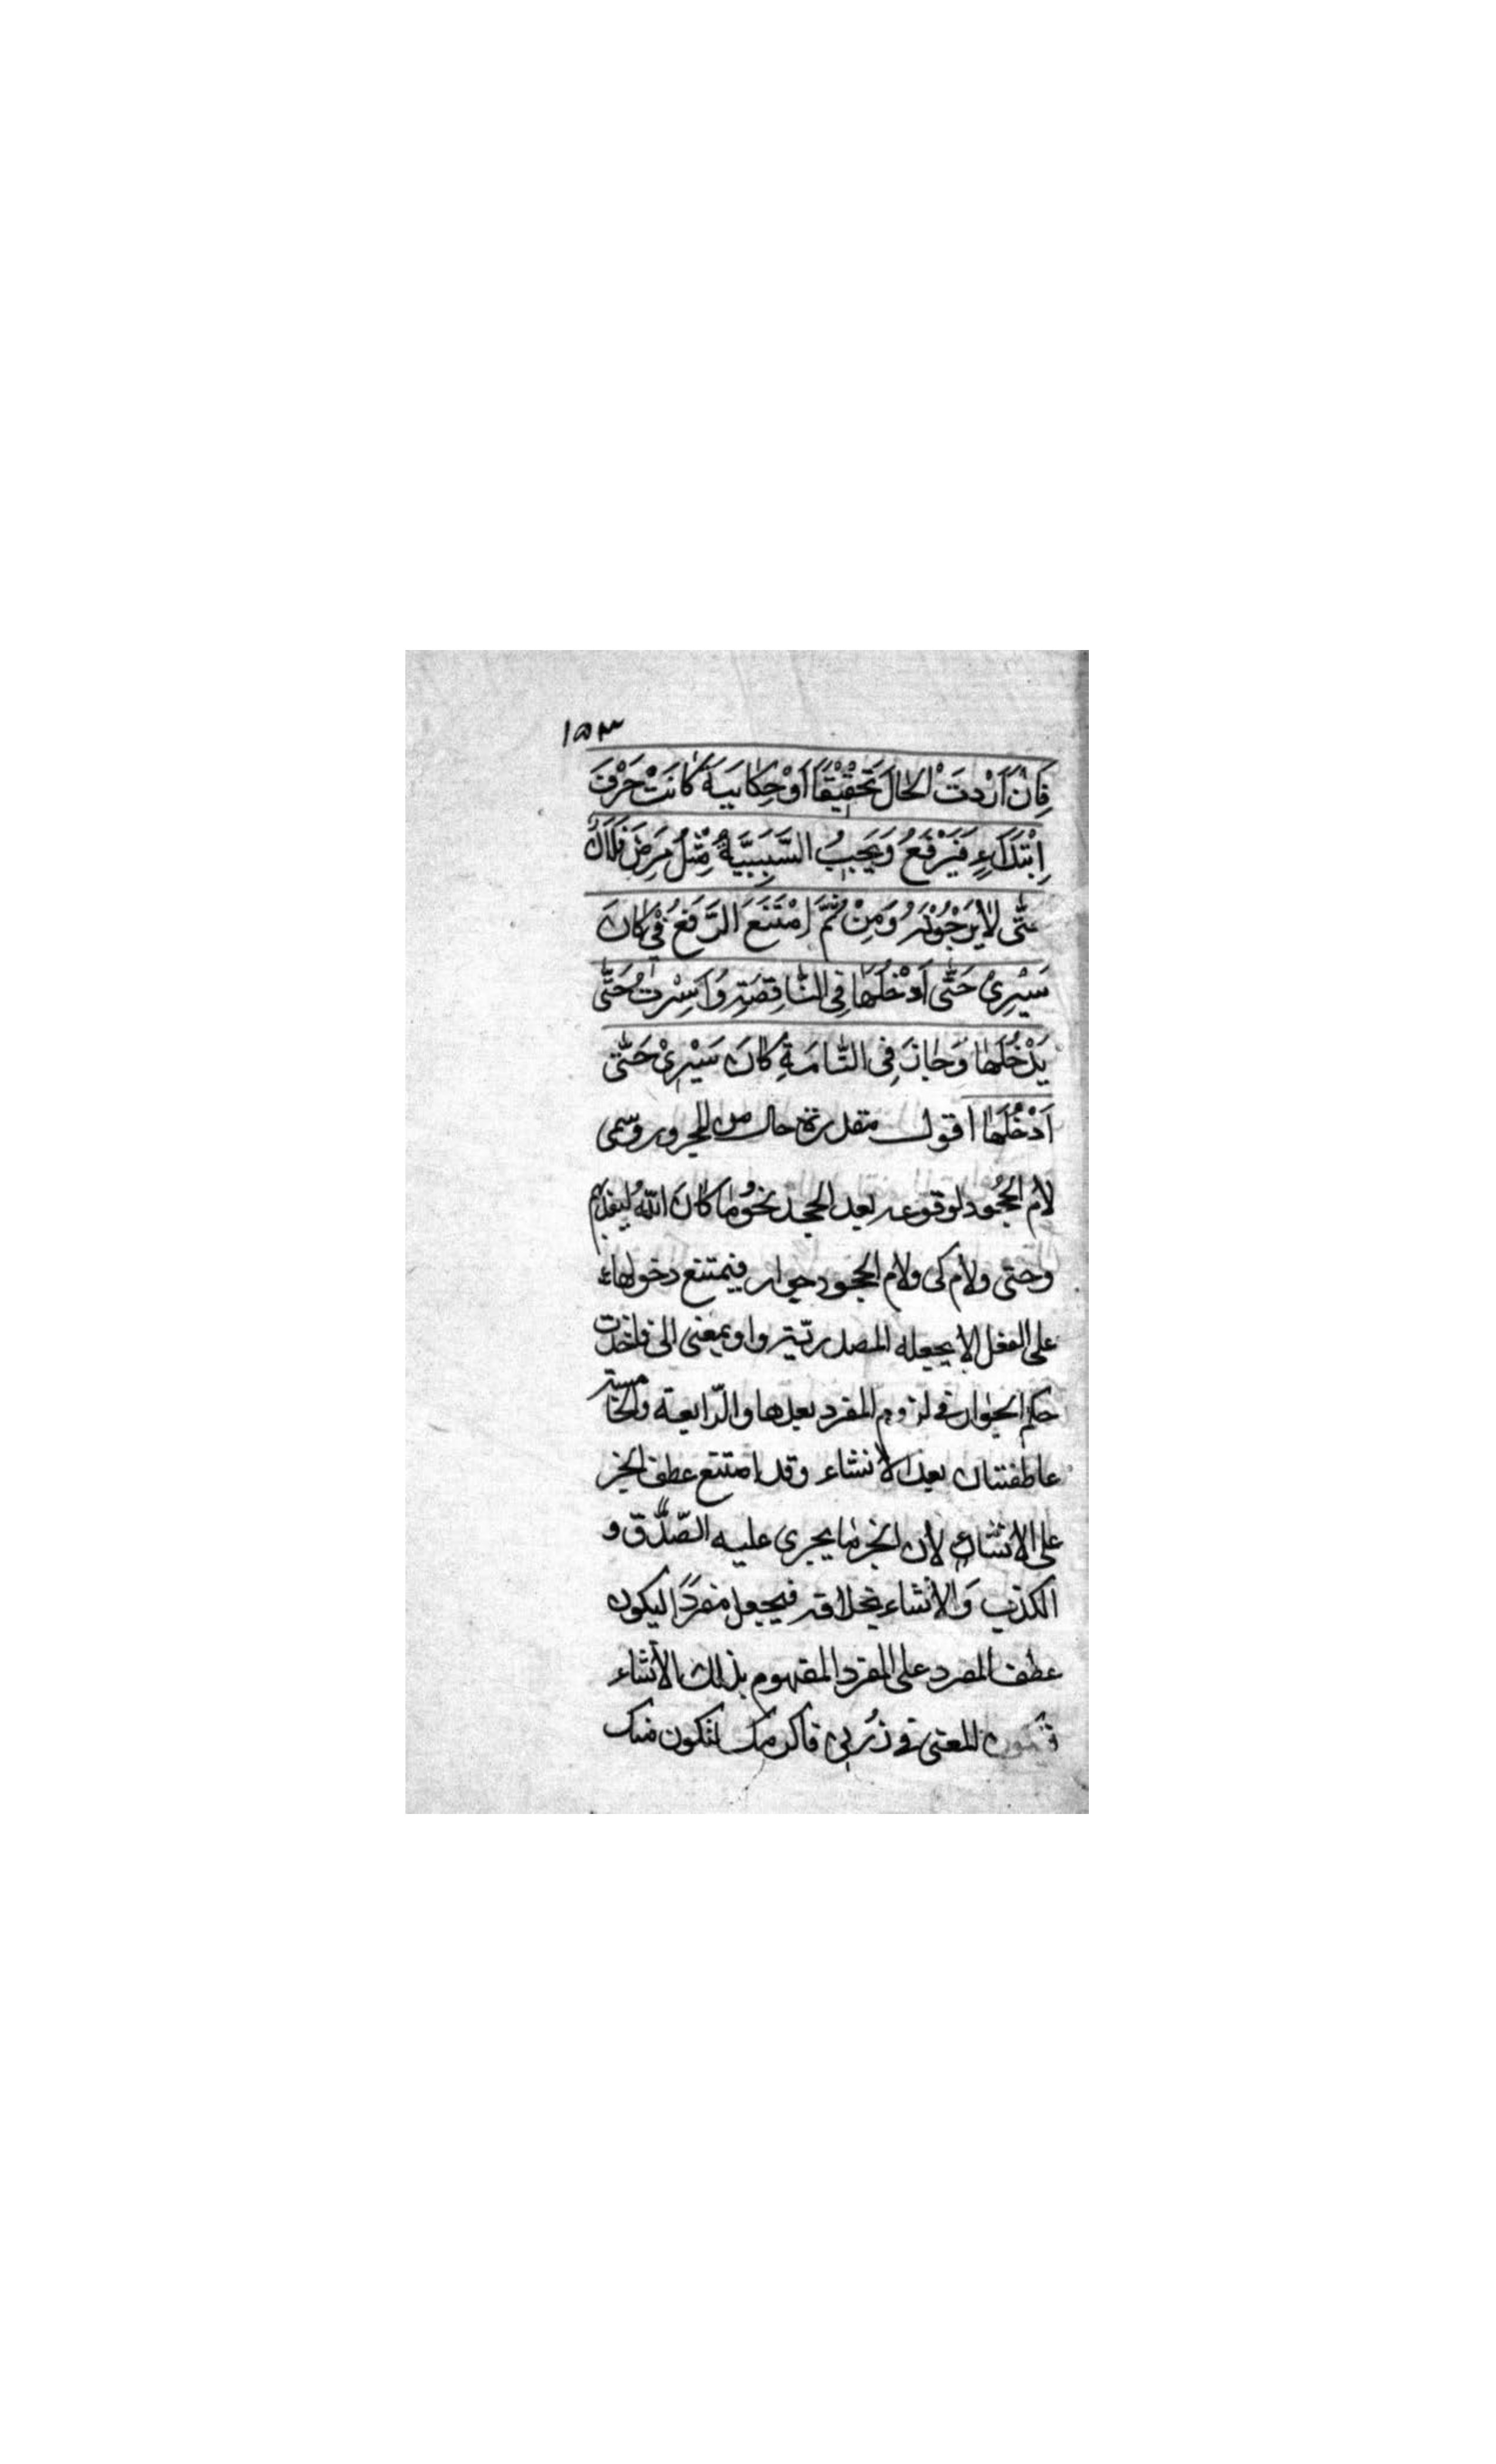 ١٥٣
فَاِنْ اَرَدْتَ الْحَالَ تَحْقِيْقًا اَوْ حِكَايَةً كَانَتْ حَرْفَ
اِبْتَدَاءٍ فَيَرْفَعُ وَيَجِبُ السَّبَبِيَّةُ مِثْلُ مَرِضَ فُلَانٌ
حَتّٰى لَا يَرْجُوْنَهُ وَمِنْ ثَمَّ اِمْتَنَعَ الرَّفْعُ فِيْ كَانَ
سَيْرِىْ حَتّٰى اَدْخُلَهَا فِى النَّاقِصَةِ وَاَسِرْتُ حَتّٰى
يَدْخُلَهَا وَجَازَ فِى التَّامَةِ كَانَ سَيْرِىْ حَتّٰى
اَدْخُلُهَا اقول مقدرة حال من المجرور وسمى
لام الجحود لوقوعه بعد الجحد نحو ما كان الله ليعذبهم
وحتى ولام كى ولام الجحود جوار فيمتنع دخولها
على الفعل الا بجعله المصدرية واو بمعنى الى فاخذت
حكم الجوار فى لزوم المفرد بعدها والرابعة والخامسة
عاطفتان بعد الانشاء وقد امتنع عطف الخبر
على الانشاء لان الخبر ما يجرى عليه الصدق و
الكذب والانشاء بخلافه فيجعل مفردا ليكون
عطف المفرد على المفرد المفهوم بذلك الانشاء
المعنى فى زرنى فاكرمك لتكون منك